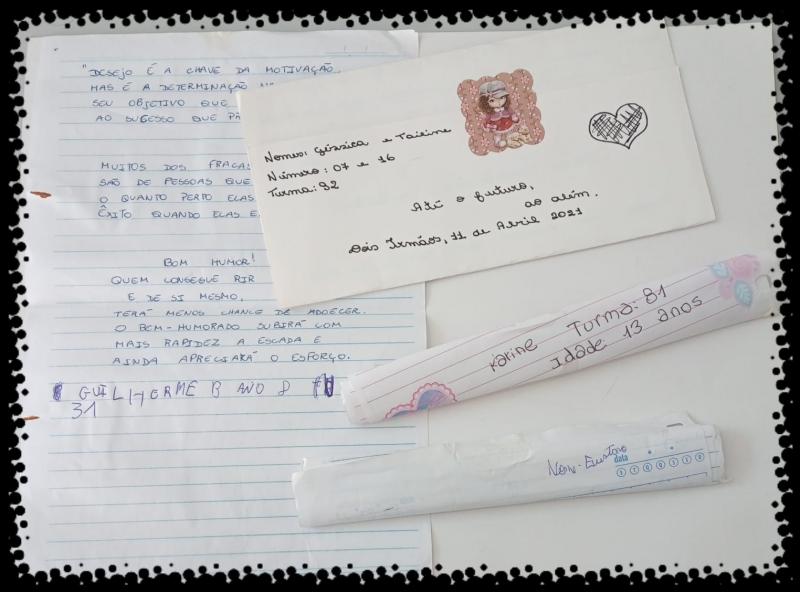 "DESEJO É A CHAVE DA MOTIVAÇÃO,
MAS É A DETERMINAÇÃO
SEU OBJETIVO QUE
AO SUCESSO QUE
MUITOS DOS
SÃO DE PESSOAS QUE
O QUANTO PERTO ELAS
ÊXITO QUANDO ELAS
BOM HUMOR!
QUEM CONSEGUE RIR
E DE SI MESMO,
TERÁ MENOS CHANCE DE ADOECER.
O BEM-HUMORADO SUBIRÁ COM
MAIS RAPIDEZ A ESCADA E
AINDA APRECIARÁ O ESFORÇO.
GUILHERME B ANO 8
31
Nomes: Géssica e Taieine
Número: 07 e 16
Turma: 92
Até o futuro,
ao além.
Dois Irmãos, 11 de Abril 2021
Karine Turma: 81
Idade 13 anos
data